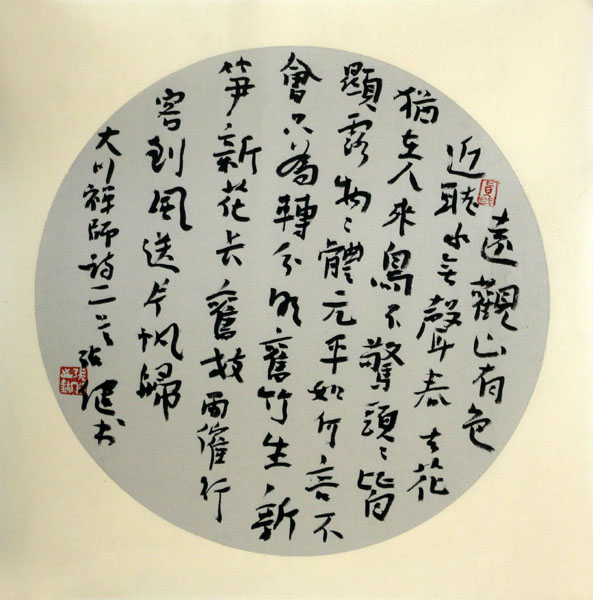 遠觀山有色
近聽水無聲春去花
猶在人來鳥不驚頭〻皆
顯露物〻體元平如何言不
會只為轉分明舊竹生新
笋新花長舊枝雨催行
客到風送片帆歸
大川禪師詩二首 張健書